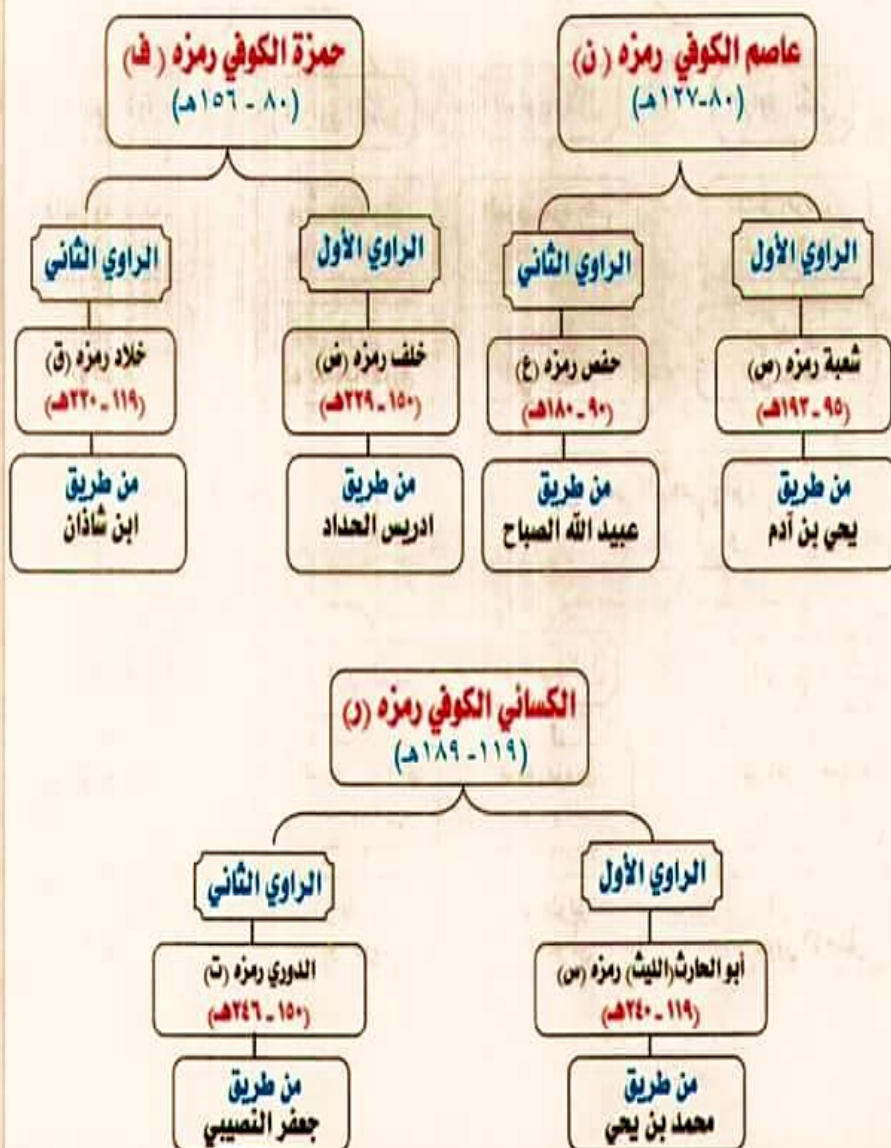 عاصم الكوفي رمزه (ن)
(٨٠-١٢٧هـ)
الراوي الأول
شعبة رمزه (ص)
(٩٥ - ١٩٣هـ)
من طريق
يحي بن آدم
الراوي الثاني
حفص رمزه (ع)
(٩٠ - ١٨٠هـ)
من طريق
عبيد الله الصباح
حمزة الكوفي رمزه ( ف)
(٨٠ - ١٥٦هـ)
الراوي الأول
خلف رمزه (ض)
(١٥٠ - ٢٢٩هـ)
من طريق
ادريس الحداد
الراوي الثاني
خلاد رمزه (ق)
(١١٩ - ٢٢٠هـ)
من طريق
ابن شاذان
الكسائي الكوفي رمزه (ر)
(١١٩ - ١٨٩هـ)
الراوي الأول
أبو الحارث(الليث) رمزه (س)
(١١٩ - ٢٤٠هـ)
من طريق
محمد بن يحي
الراوي الثاني
الدوري رمزه (ت)
(١٥٠ - ٢٤٦هـ)
من طريق
جعفر النصيبي